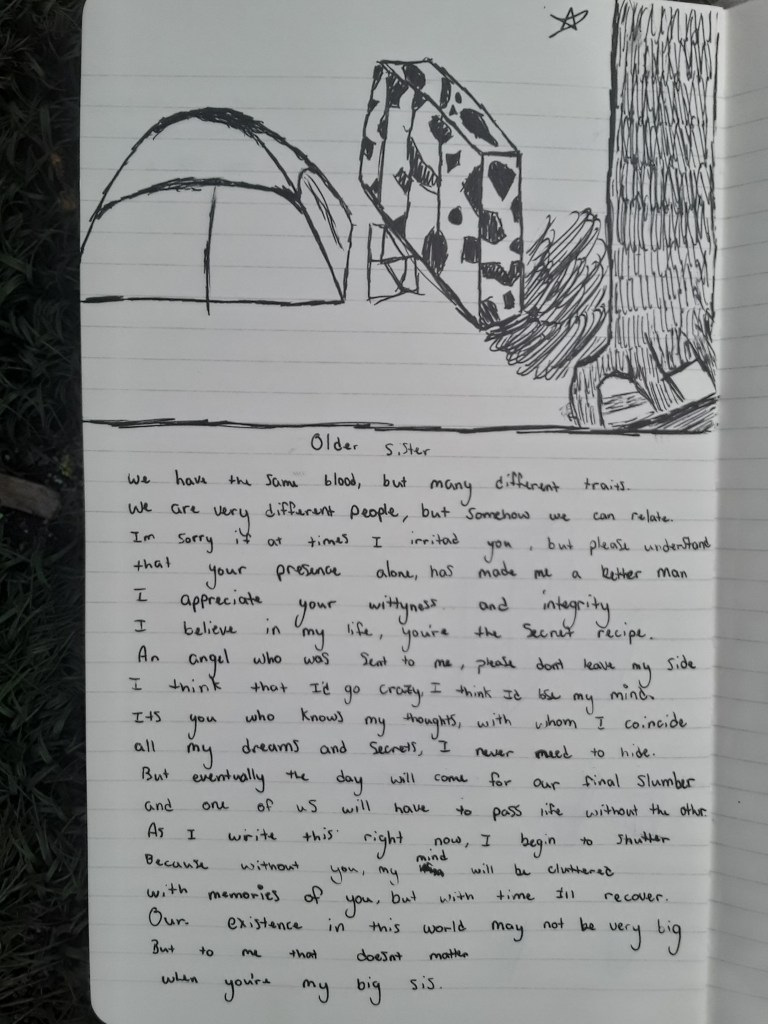 Older sister
We have the same blood, but many different traits.
We are very different people, but somehow we can relate.
Im sorry if at times I irritad you, but please understand
that your presence alone, has made me a better man
I appreciate your wittyness and integrity
I believe in my life, you're the secret recipe.
An angel who was sent to me, please dont leave my side
I think that I'd go crazy, I think I'd lose my mind.
Its you who knows my thoughts, with whom I coincide
all my dreams and secrets, I never need to hide.
But eventually the day will come for our final slumber
and one of us will have to pass life without the othr
As I write this right now, I begin to shutter
Because without you, my mind will be cluttered
with memories of you, but with time I'll recover.
Our existence in this world may not be very big
But to me that doesnt matter
when you're my big sis.